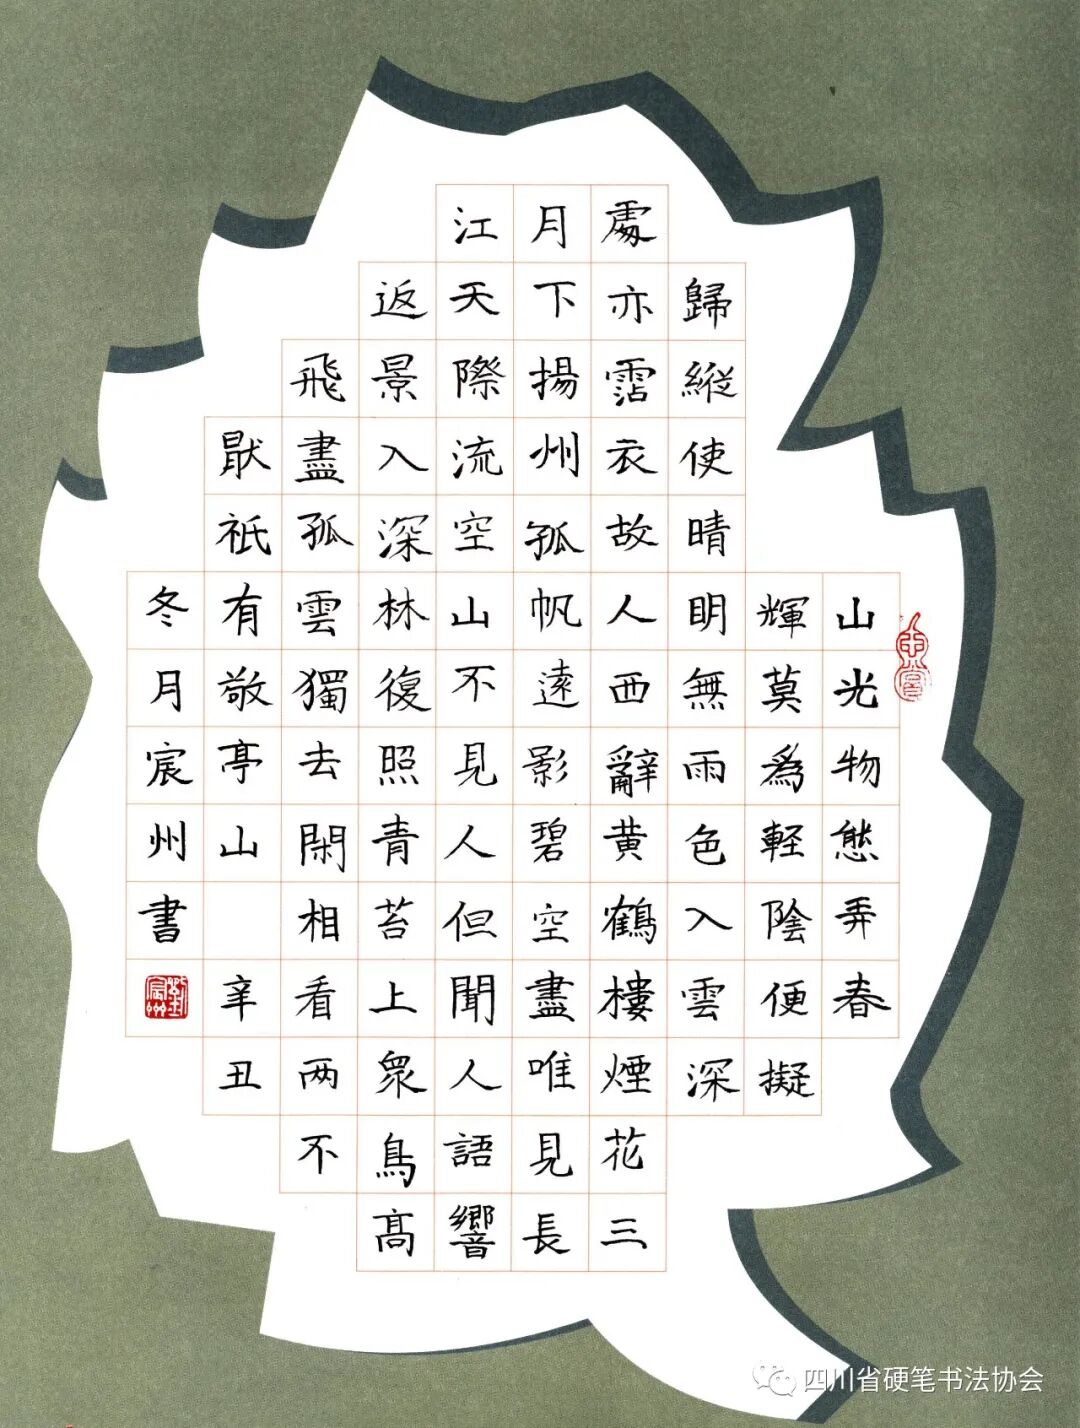 山光物態弄春
輝莫為軽陰便擬
歸縦使晴明無雨色入雲深
處亦霑衣故人西辭黄鶴樓煙花三
月下揚州孤帆遠影碧空盡唯見長
江天際流空山不見人但聞人語響
返景入深林復照青苔上衆鳥髙
飛盡孤雲獨去閑相看两不
厭祇有敬亭山 辛丑
冬月宸州書
劉宸州
四川省硬笔书法协会